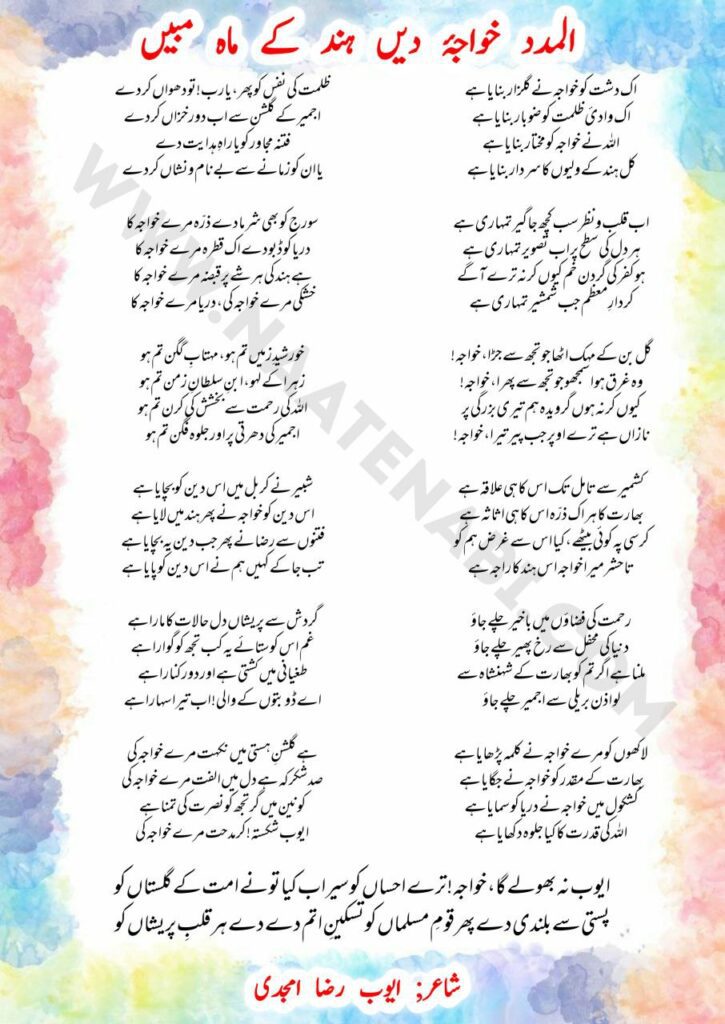 المدد خواجۂ دیں ہند کے ماہ مبیں
اک دشت کو خواجہ نے گلزار بنایا ہے
اک وادیِٔ ظلمت کو ضوبار بنایا ہے
اللہ نے خواجہ کو مختار بنایا ہے
کل ہند کے ولیوں کا سردار بنایا ہے
ظلمت کی نفس کو پھر، یارب! تو دھواں کر دے
اجمیر کے گلشن سے اب دور خزاں کر دے
فتنہ مجاور کو یا راہِ ہدایت دے
یا ان کو زمانے سے بے نام و نشاں کر دے
اب قلب و نظر سب کچھ جاگیر تمہاری ہے
ہر دل کی سطح پر اب تصویر تمہاری ہے
ہو کفر کی گردن خم کیوں کر نہ ترے آگے
کردارِ معظم جب شمشیر تمہاری ہے
سورج کو بھی شرما دے ذرّہ مرے خواجہ کا
دریا کو ڈبو دے اک قطرہ مرے خواجہ کا
ہے ہند کی ہر شے پر قبضہ مرے خواجہ کا
خشکی مرے خواجہ کی، دریا مرے خواجہ کا
گل بن کے مہک اٹھا جو تجھ سے جڑا، خواجہ!
وہ غرق ہوا سمجھو جو تجھ سے پھرا، خواجہ!
کیوں کر نہ ہوں گرویدہ ہم تیری بزرگی پر
نازاں ہے ترے اوپر جب پیر تیرا، خواجہ!
خورشیدِ زمیں تم ہو، مہتابِ گگن تم ہو
زہرا کے لہو، ابنِ سلطانِ زمن تم ہو
اللہ کی رحمت سے بخشش کی کرن تم ہو
اجمیر کی دھرتی پر اور جلوہ فگن تم ہو
کشمیر سے تامل تک اس کا ہی علاقہ ہے
بھارت کا ہر اک ذرّہ اس کا ہی اثاثہ ہے
کرسی پہ کوئی بیٹھے، کیا اس سے غرض ہم کو
تا حشر میرا خواجہ اس ہند کا راجہ ہے
شبیر نے کربل میں اس دین کو بچایا ہے
اس دین کو خواجہ نے پھر ہند میں لایا ہے
فتنوں سے رضا نے پھر جب دین یہ بچایا ہے
تب جا کے کہیں ہم نے اس دین کو پایا ہے
رحمت کی فضاؤں میں باخیر چلے جاؤ
دنیا کی محفل سے رخ پھیر چلے جاؤ
ملنا ہے اگر تم کو بھارت کے شہنشاہ سے
لو اذن بریلی سے اجمیر چلے جاؤ
گردش سے پریشاں دل حالات کا مارا ہے
غم اس کو ستائے یہ کب تجھ کو گوارا ہے
طغیانی میں کشتی ہے اور دور کنارا ہے
اے ڈوبتوں کے والی! اب تیرا سہارا ہے
لاکھوں کو مرے خواجہ نے کلمہ پڑھایا ہے
بھارت کے مقدر کو خواجہ نے جگایا ہے
کشکول میں خواجہ نے دریا کو سمایا ہے
اللہ کی قدرت کا کیا جلوہ دکھایا ہے
ہے گلشنِ ہستی میں نکہت مرے خواجہ کی
صد شکر کہ ہے دل میں الفت مرے خواجہ کی
کونین میں گر تجھ کو نصرت کی تمنا ہے
ایوب شکستہ! کر مدحت مرے خواجہ کی
ایوب نہ بھولے گا، خواجہ! ترے احساں کو سیراب کیا تو نے امت کے گلستاں کو
پستی سے بلندی دے پھر قومِ مسلماں کو تسکینِ اتم دے دے ہر قلبِ پریشاں کو
شاعر: ایوب رضا امجدی
WWW.NAATENABI.COM